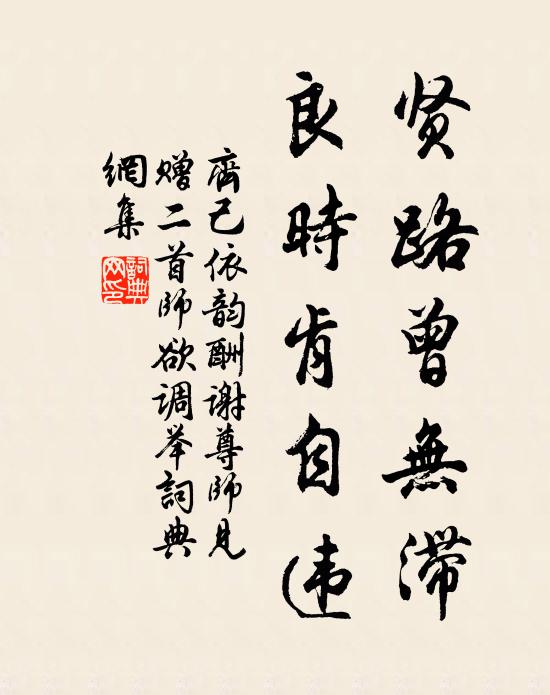 贤路曾無滞
良時肯自违
齊己依韵酬谢尊师见
赠二首师欲调举詞典
網集
詞典網印